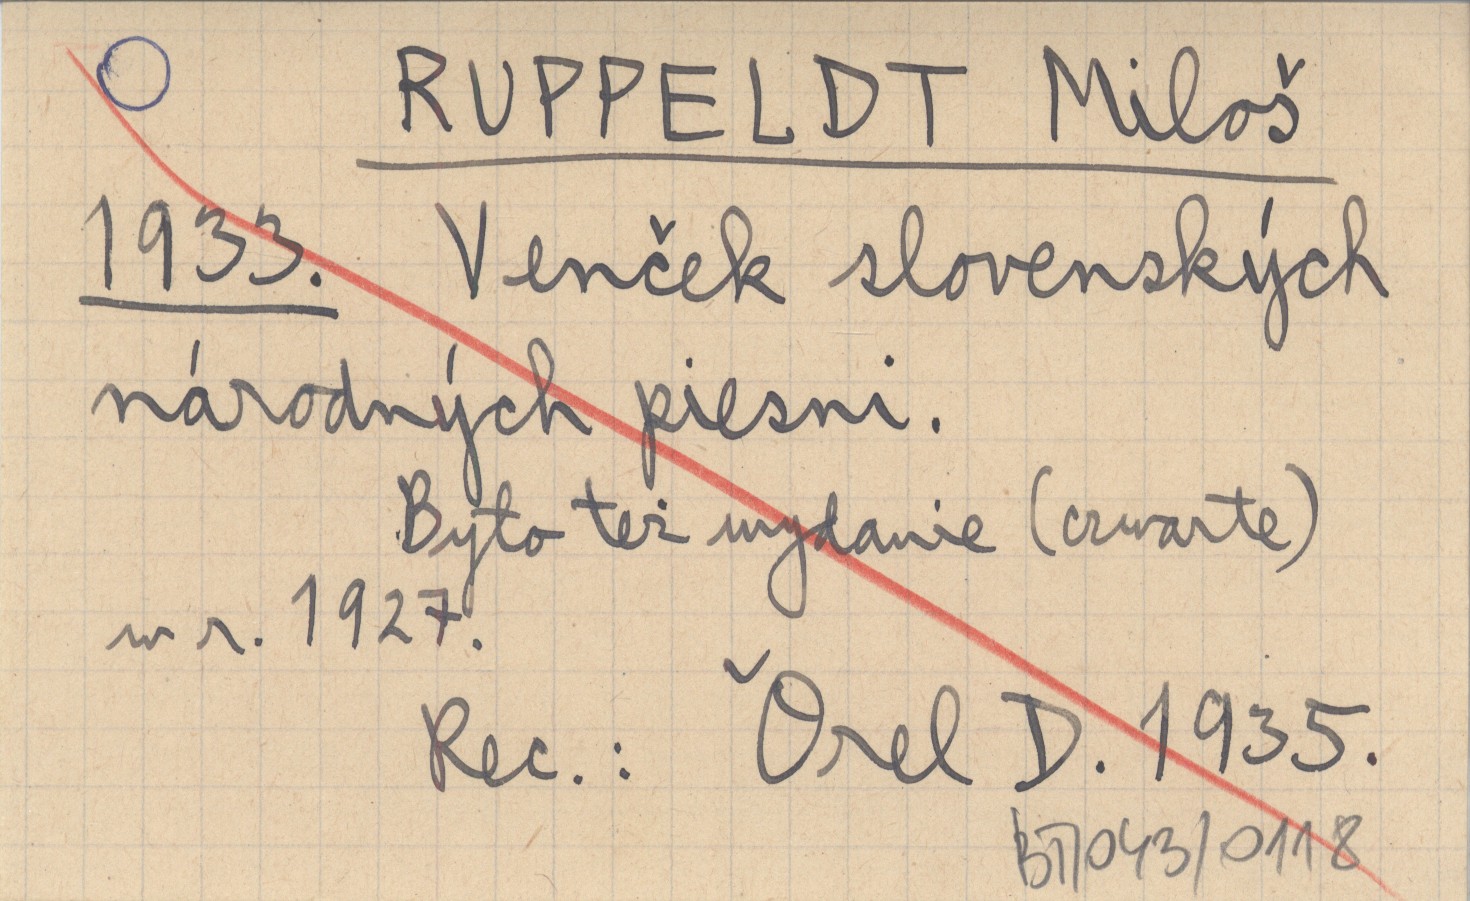 RUPPELDT Miloš
1933. Venček slovenských
národných piesni.
Było też wydanie (czwarte)
w r. 1927.
Rec.: Orel D. 1935.
BT/043/0118